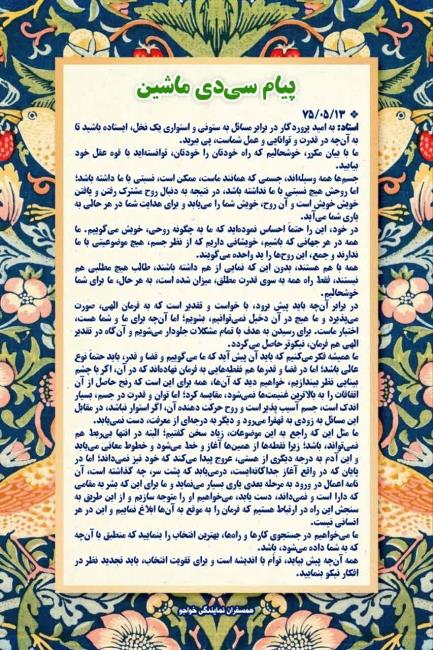 پیام سی‌دی ماشین
❖ ۷۵/۰۵/۱۳
استاد: به امید پروردگار در برابر مسائل به ستونی و استواری یک نخل، ایستاده باشید تا
به آن‌چه در قدرت و توانایی و عمل شماست، پی ببرید.
ما با بیان مکرر، خوشحالیم که راه خودتان را خودتان، توانسته‌اید با قوه عقل خود
بیابید.
جسم‌ها همه وسیله‌اند، جسمی که همانند ماست، ممکن است، نسبتی با ما داشته باشد؛
اما روحش هیچ نسبتی با ما نداشته باشد، در نتیجه به دنبال روح مشترک رفتن و یافتن
خویش خویش است و آن روح، خویش شما را می‌یابد و برای هدایت شما در هر حالی به
یاری شما می‌آید.
در خود، این را حتماً احساس نموده‌اید که ما به چگونه روحی، خویش می‌گوییم. ما
همه در هر جهانی که باشیم، خویشانی داریم که از نظر جسم، هیچ موضوعیتی با ما
ندارند و جمع، این روح‌ها را ید واحده می‌گویند.
همه با هم هستند، بدون این که نمایی از هم داشته باشند، طالب هیچ مطلبی هم
نیستند، فقط راه همه به سوی قدرت مطلق، میزان شده است، به هر حال، ما برای شما
خوشحالیم.
در برابر آن‌چه باید پیش برود، با خواست و تقدیر است که به فرمان الهی، صورت
می‌پذیرد و ما هیچ در آن دخیل نمی‌توانیم، بشویم؛ اما آن‌چه برای ما و شما هست،
اختیار ماست. برای رسیدن به هدف با تمام مشکلات جلودار می‌شویم و آن‌گاه در تقدیر
الهی هم فرمان، نیکوتر حاصل می‌گردد.
ما همیشه فکر می‌کنیم که باید آن پیش آید که ما می‌گوییم و قضا و قدر باید حتماً نوع
عالی باشد؛ اما در قضا و قدرها هم نقطه‌هایی به فرمان نهاده‌اند که در آن، اگر با چشم
بینایی نظر بیندازیم، خواهیم دید که آن‌ها، همه برای این است که رنج حاصل از آن
اتفاقات را به بالاترین غنیمت‌ها نمی‌شود، مقایسه کرد؛ اما توان و قدرت در جسم، بسیار
اندک است، جسم آسیب پذیر است و روح حرکت دهنده آن، اگر استوار نباشد، در مقابل
این مسائل به زودی به قهقرا می‌رود و دیگر به درجه‌ای از معرفت، دست نمی‌یابد.
ما مثل این که راجع به این موضوعات، زیاد سخن گفتیم؛ البته در انتها بی‌ربط هم
نمی‌تواند، باشد؛ زیرا نقطه‌ها از همین‌ها آغاز و خط می‌شود و خطوط معانی می‌یابد
و این آدم به درجه دیگری از هستی، عروج پیدا می‌کند که خود نیز نمی‌داند؛ اما در
پایان که در واقع آغاز جداگانه‌ایست، درمی‌یابد که پشت سر، چه گذاشته است، آن
نامه اعمال در ورود به مرحله بعدی یاری بسیار می‌نماید و ما برای این که بشر به مقامی
که دارا است و نمی‌داند، دست یابد، می‌خواهیم او را متوجه سازیم و از این طریق به
سنجش این راه در ارتباط هستیم که فرمان را به موقع به آن‌ها ابلاغ نماییم و این در هر
انسانی نیست.
ما می‌خواهیم در جستجوی کارها و راه‌ها، بهترین انتخاب را بنمایید که منطبق با آن‌چه
که به شما داده می‌شود، باشد.
همه آن‌چه پیش بیاید، توأم با اندیشه است و برای تقویت انتخاب، باید تجدید نظر در
افکار نیکو بنمایید.
همسفران نمایندگی خواجو